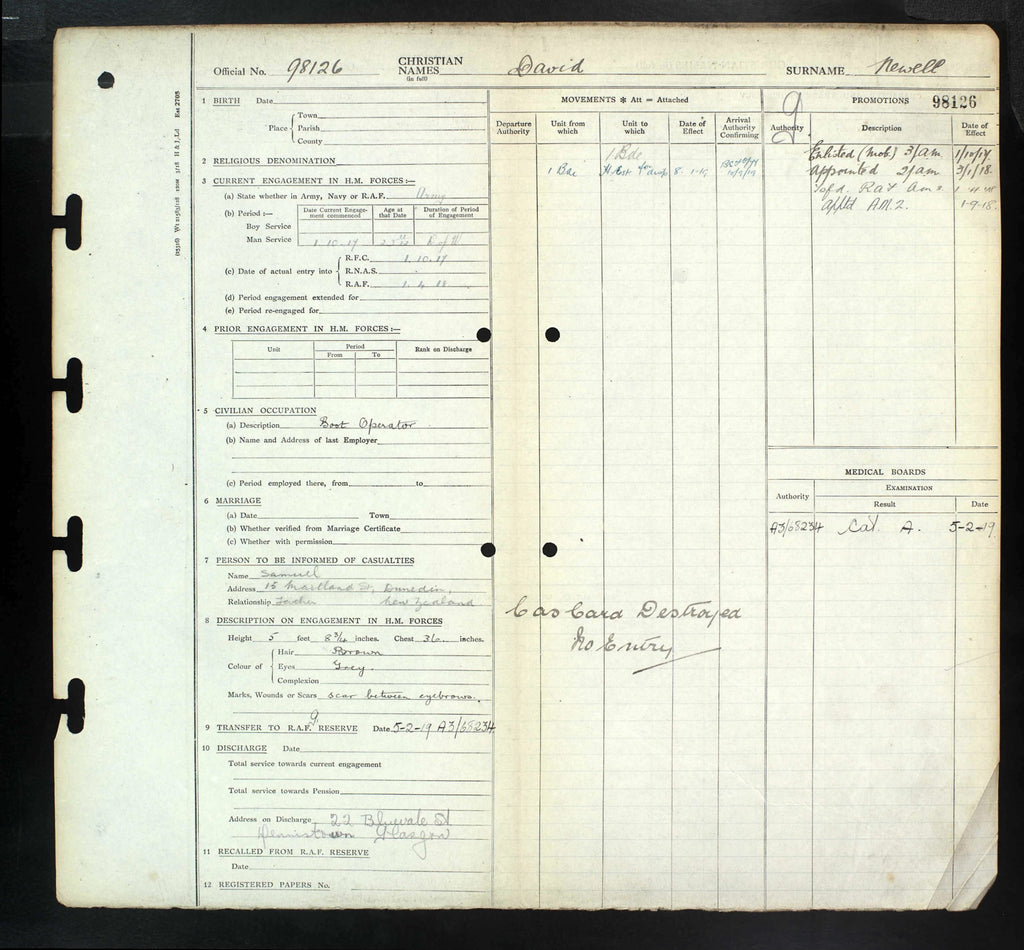 Official No. 98126 CHRISTIAN NAMES (in full) David SURNAME Newell
1 BIRTH Date
Place Town
Parish
County
2 RELIGIOUS DENOMINATION
3 CURRENT ENGAGEMENT IN H.M. FORCES:—
(a) State whether in Army, Navy or R.A.F. Army
(b) Period:— Date Current Engagement commenced Age at that Date Duration of Period of Engagement
Boy Service
Man Service 1.10.17 D of W
(c) Date of actual entry into R.F.C. 1.10.17
R.N.A.S.
R.A.F. 1.4.18
(d) Period engagement extended for
(e) Period re-engaged for
4 PRIOR ENGAGEMENT IN H.M. FORCES:—
Unit Period Rank on Discharge
From To
5 CIVILIAN OCCUPATION
(a) Description Boot Operator
(b) Name and Address of last Employer
(c) Period employed there, from to
6 MARRIAGE
(a) Date Town
(b) Whether verified from Marriage Certificate
(c) Whether with permission
7 PERSON TO BE INFORMED OF CASUALTIES
Name Samuel
Address 15 Maitland St, Dunedin,
Relationship Father New Zealand
8 DESCRIPTION ON ENGAGEMENT IN H.M. FORCES
Height 5 feet 8 3/4 inches. Chest 36 inches.
Colour of Hair Brown
Eyes Grey.
Complexion
Marks, Wounds or Scars scar between eyebrows.
9 TRANSFER TO R.A.F. RESERVE Date 5-2-19 A3/68234
10 DISCHARGE Date
Total service towards current engagement
Total service towards Pension
Address on Discharge 22 Bluevale St
Dennistown Glasgow
11 RECALLED FROM R.A.F. RESERVE
Date
12 REGISTERED PAPERS No.
MOVEMENTS * Att = Attached
Departure Authority Unit from which Unit to which Date of Effect Arrival Authority Confirming
1 Bde
1 Bde
Cas Card Destroyed
No Entry
9 PROMOTIONS 98126
Authority Description Date of Effect
Enlisted (Mob) 3/am 1/10/17
Appointed 2/am 3/1/18.
Raf Am 2
Apptd A.M.2. 1-9-18.
MEDICAL BOARDS
Authority EXAMINATION
Result Date
A3/68234 Cat A. 5-2-19